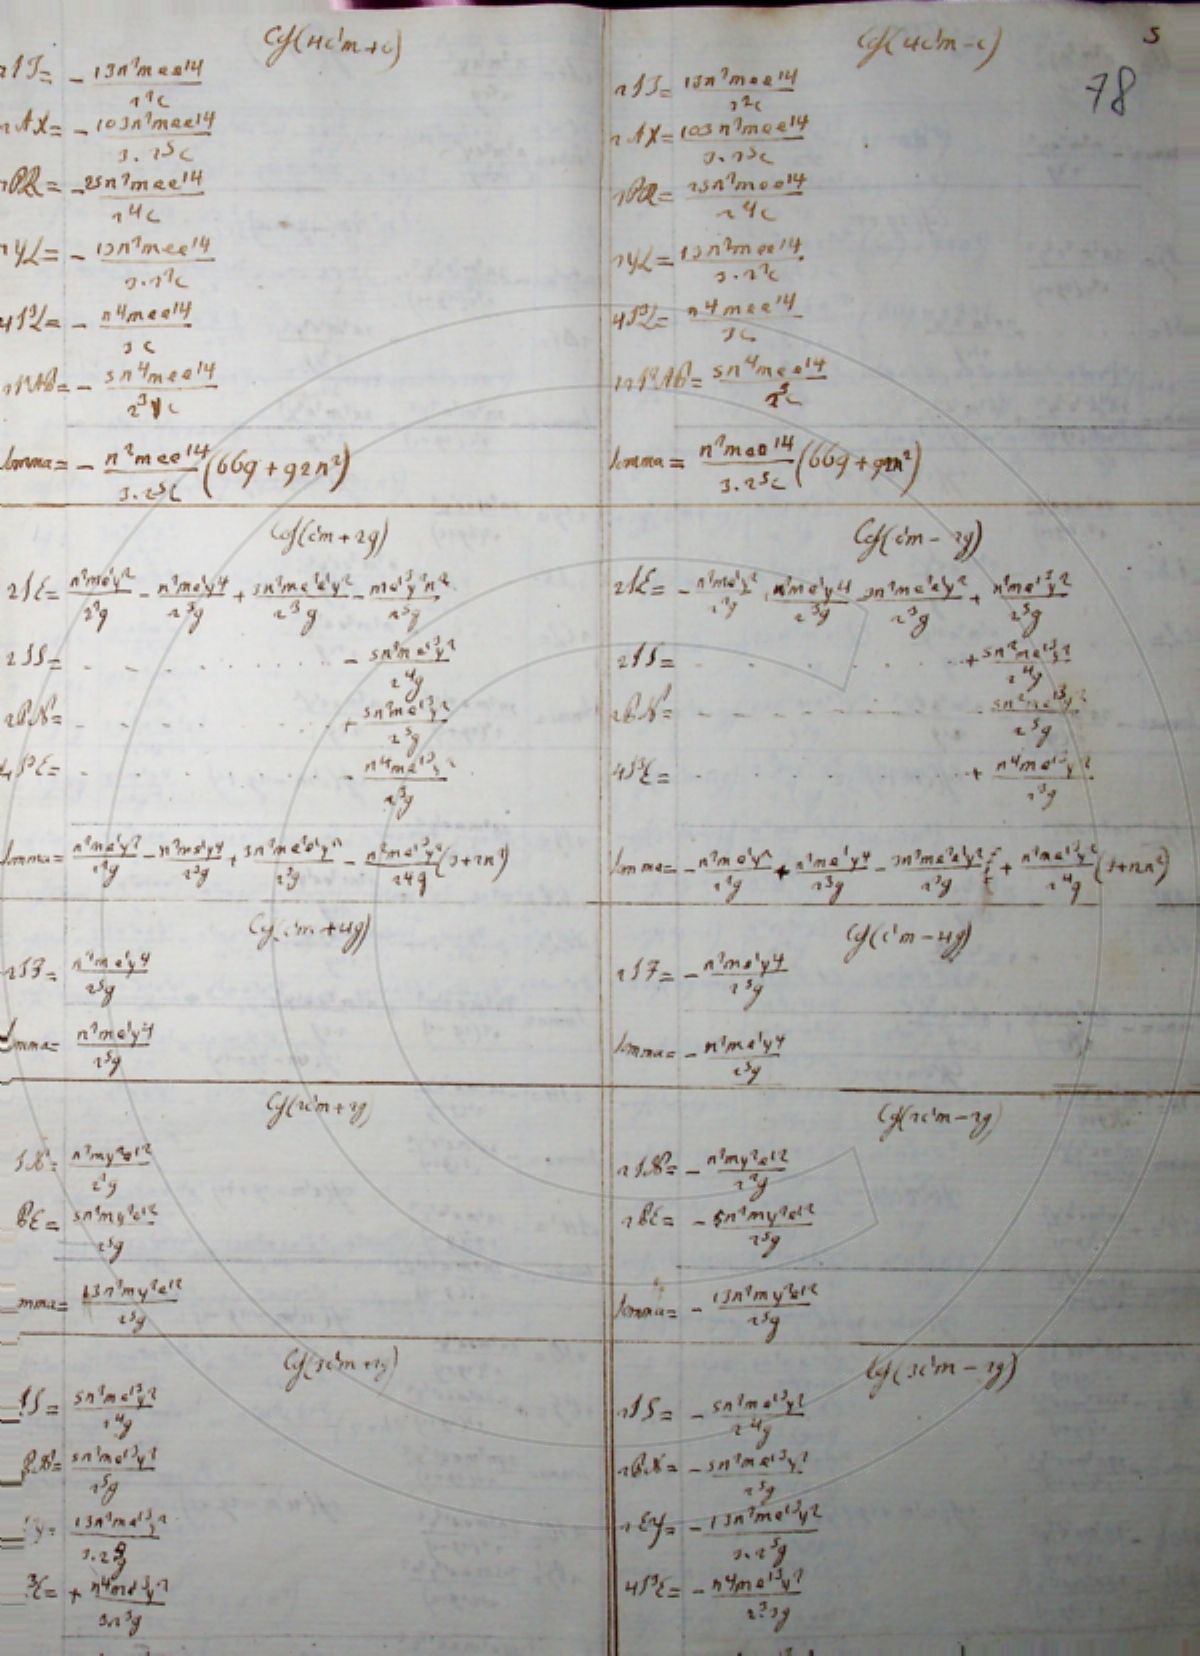 5
78
Cof(4c'm+c)
2IT= - 13n²mee'4 / 2²c
2AX= - 103n²mee'4 / 3.2⁵c
2BR= - 25n²mee'4 / 2⁴c
2YL= - 13n²mee'4 / 3.2²c
4I³L= - n⁴mee'4 / 3c
- 5n⁴mee'4 / 2³c
Somma= - n²mee'4 / 3.2⁵c (669+92n²)
Cof(4c'm-c)
2IT= 13n²mee'4 / 2²c
2AX= 103n²mee'4 / 3.2⁵c
2BR= 25n²mee'4 / 2⁴c
2YL= 13n²mee'4 / 3.2²c
4I³L= n⁴mee'4 / 3c
5n⁴mee'4 / 2³c
Somma= n²mee'4 / 3.2⁵c (669+92n²)
Cof(c'm+2g)
2IE= n²me'y² / 2²g - n²me'y⁴ / 2³g + 3n²me²e'y² / 2³g - me'³y²n² / 2⁵g
2IS= - 5n²me'³y² / 2⁴g
2BN= + 5n²me'³y² / 2⁵g
4I³E= - n⁴me'³y² / 2³g
Somma= n²me'y² / 2²g - n²me'y⁴ / 2³g + 3n²me²e'y² / 2³g - n²me'³y² / 2⁴g (3+2n²)
Cof(c'm-2g)
2IE= - n²me'y² / 2²g + n²me'y⁴ / 2³g - 3n²me²e'y² / 2³g + n²me'³y² / 2⁵g
2IS= + 5n²me'³y² / 2⁴g
2BN= - 5n²me'³y² / 2⁵g
4I³E= + n⁴me'³y² / 2³g
Somma= - n²me'y² / 2²g + n²me'y⁴ / 2³g - 3n²me²e'y² / 2³g + n²me'³y² / 2⁴g (3+2n²)
Cof(c'm+4g)
2IF= n²me'y⁴ / 2⁵g
Somma= n²me'y⁴ / 2⁵g
Cof(c'm-4g)
2IF= - n²me'y⁴ / 2⁵g
Somma= - n²me'y⁴ / 2⁵g
Cof(2c'm+2g)
IN= n²my²e'2 / 2²g
BE= 5n²my²e'2 / 2⁵g
mma= 13n²my²e'2 / 2⁵g
Cof(2c'm-2g)
2IN= - n²my²e'2 / 2²g
2BE= - 5n²my²e'2 / 2⁵g
Somma= - 13n²my²e'2 / 2⁵g
Cof(3c'm+2g)
IS= 5n²me'³y² / 2⁴g
BN= 5n²me'³y² / 2⁵g
Y= 13n²me'³y² / 3.2⁵g
³E= + n⁴me'³y² / 32³g
Cof(3c'm-2g)
2IS= - 5n²me'³y² / 2⁴g
2BN= - 5n²me'³y² / 2⁵g
2EY= - 13n²me'³y² / 3.2⁵g
4I³E= - n⁴me'³y² / 2³3g